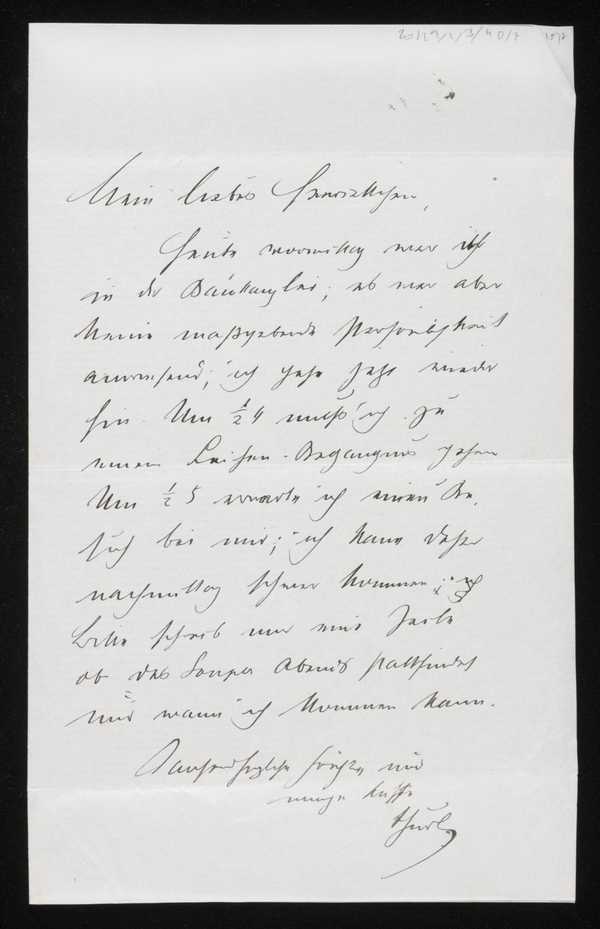 Mein liebes
Heute vormittag war ich
in der Baukanzlei; es war aber
keine maßgebende Persönlichkeit
anwesend; ich gehe jetzt wieder
hin. Um ½4 muß ich zu
einem Leichen-Begängnis gehen
Um ½5 erwarte ich einen Be,
such bei mir; ich kann daher
nachmittag schwer kommen; ich
bitte schreib mir eine Zeile
ob das Souper Abends stattfindet
und wann ich kommen kann.
Tausend herzliche Grüße und
innige Küsse